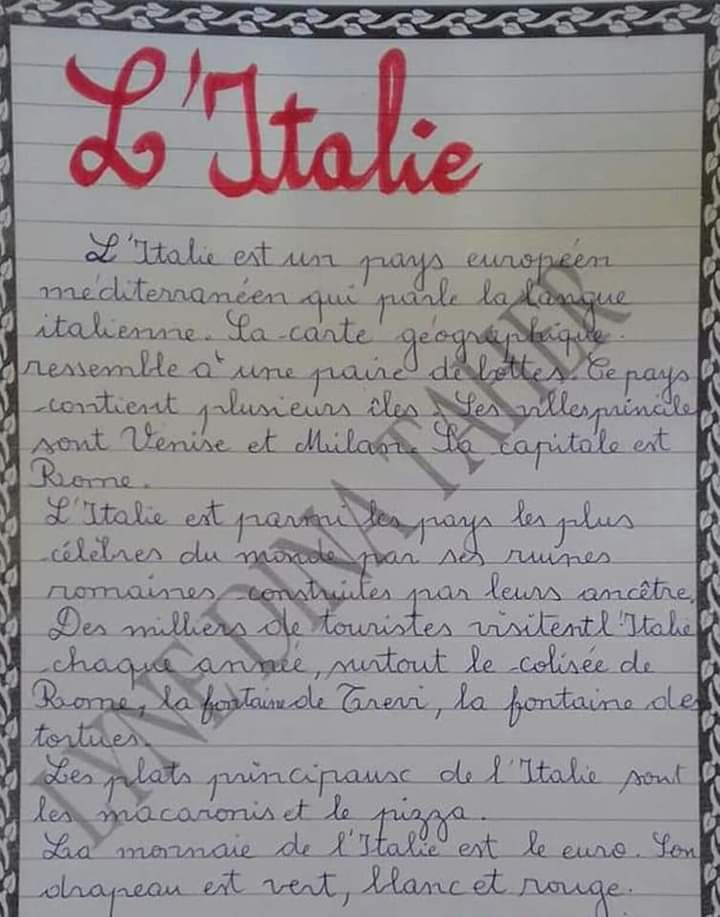 L'Italie
L'Italie est un pays européen
méditerranéen qui parle la langue
italienne. Sa carte géographique
ressemble à une paire de bottes. Ce pays
contient plusieurs îles. Les villes princile
sont Venise et Milan. Sa capitale est
Rome.
L'Italie est parmi les pays les plus
célèbres du monde par ses ruines
romaines construites par leurs ancêtre.
Des milliers de touristes visitent l'Italie
chaque année, surtout le colisée de
Rome, la fontaine de Trevi, la fontaine des
tortues.
Les plats principaux de l'Italie sont
les macaronis et le pizza.
La monnaie de l'Italie est le euro. Son
drapeau est vert, blanc et rouge.
LYNE DINA TAHER